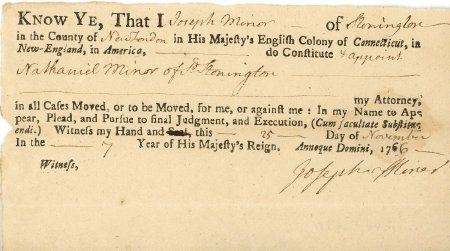 KNOW YE, That I Joseph Minor of Stonington
in the County of New London in His Majesty's English Colony of Connecticut, in
New-England, in America, do Constitute & appoint
Nathaniel Minor of sd. Stonington
my Attorney,
in all Cases Moved, or to be Moved, for me, or against me : In my Name to Ap-
pear, Plead, and Pursue to final Judgment, and Execution, (Cum facultate Substitu-
endi.) Witness my Hand and Seal, this 25 Day of November
In the 7 Year of His Majesty's Reign. Annoque Domini, 1766
Witness,
Joseph Minor